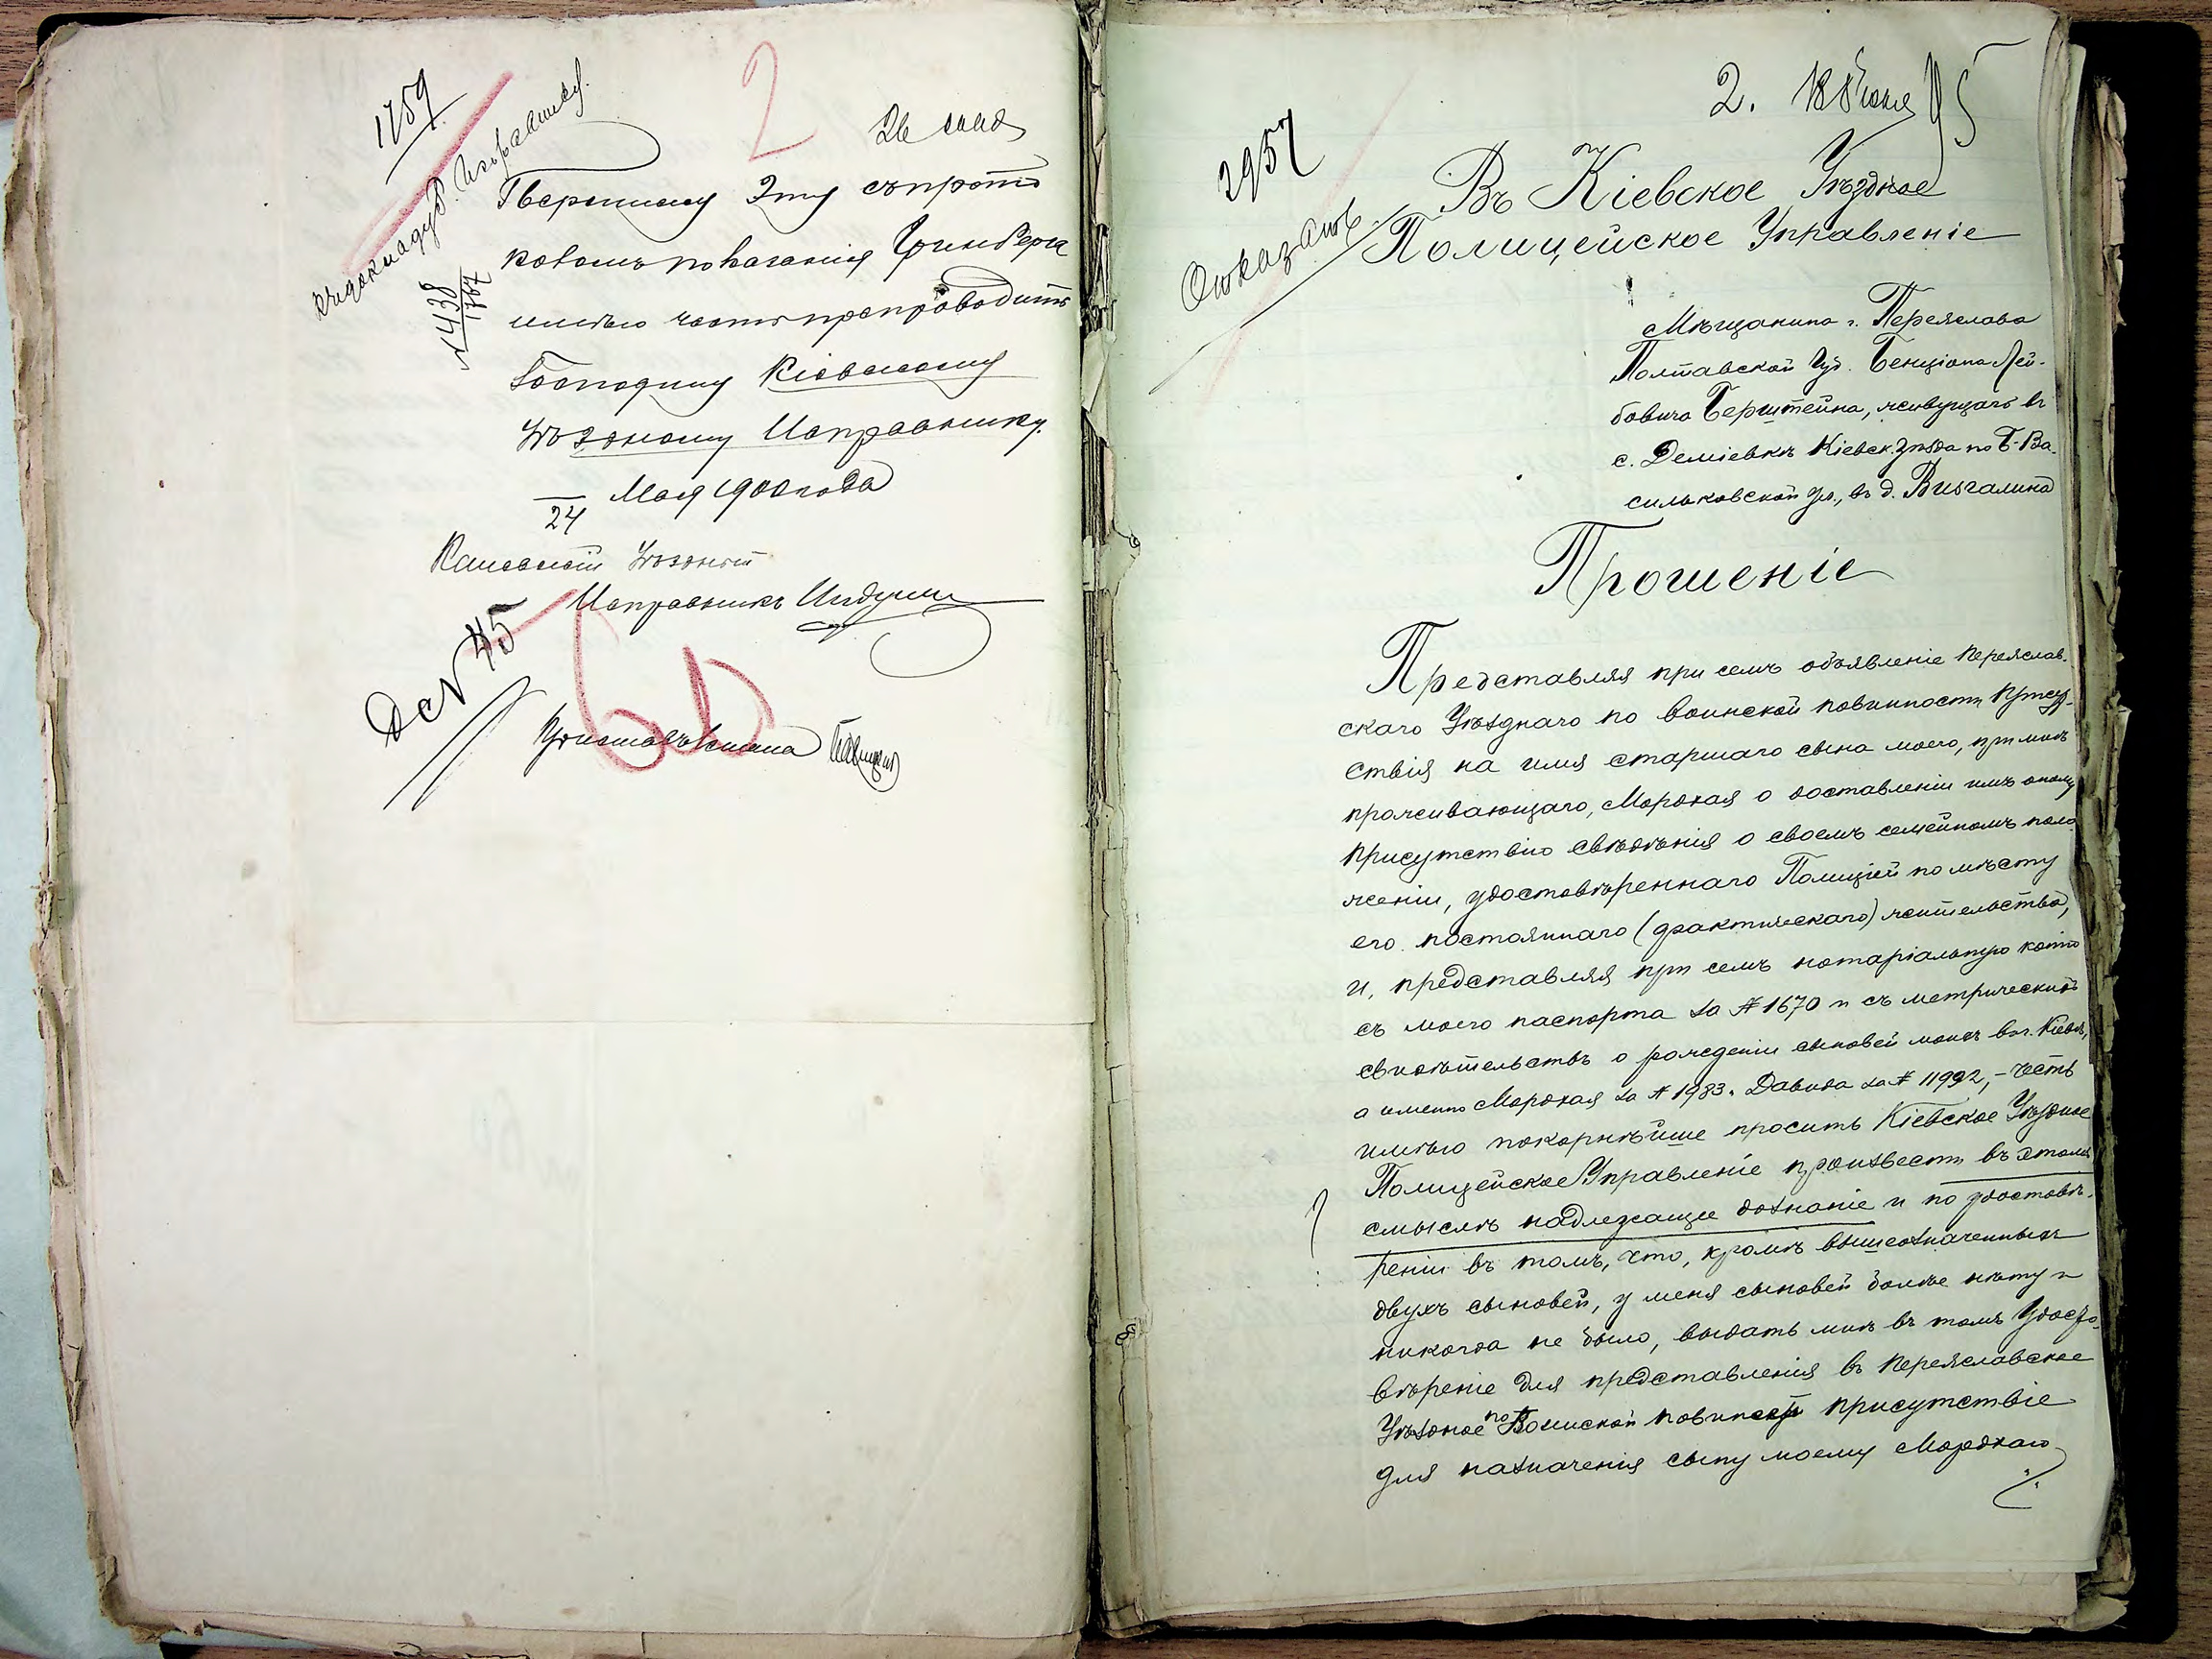 1759
2
26 мая
№ 1438
167
Переписку эту съ прото
коломъ показанія Гринберга
имѣю честь препроводить
Господину Кіевскому
Уѣздному Исправнику.
24 Мая 1900 года
Каневскій Уѣздный
Исправникъ
45
2. 18 8 Іюня
95
2957
Отказать
Въ Кіевское Уѣздное
Полицейское Управленіе
Мѣщанина г. Переяслава
Полтавской Губ. Бенціона Лей-
бовича Берштейна, живущаго въ
с. Деміевкѣ Кіевск. уѣзда по Б-Ва-
сильковской ул., въ д.
Прошеніе
Представляя при семъ объявленіе Переяслав-
скаго Уѣзднаго по воинской повинности Присут-
ствія на имя старшаго сына моего, при мнѣ
проживающаго, Мордхая о доставленіи имъ оному
присутствію свѣдѣнія о своемъ семейномъ поло
женіи, удостовѣреннаго Полиціей по мѣсту
его постояннаго (фактическаго) жительства,
и, представляя при семъ нотаріальную копію
съ моего паспорта за № 1670 и съ метрическихъ
свидѣтельствъ о рожденіи сыновей моихъ въ г. Кіевѣ,
а именно Мордхая за № 1983 и Давида за № 11992, – честь
имѣю покорнѣйше просить Кіевское Уѣздное
Полицейское Управленіе произвести въ этомъ
смыслѣ надлежащее дознаніе и по удостовѣ-
реніи въ томъ, что, кромѣ вышеозначенныхъ
двухъ сыновей, у меня сыновей болѣе нѣту и
никогда не было, выдать мнѣ въ томъ Удосто-
вѣреніе для представленія въ Переяславское
Уѣздное по Воинской повинности присутствіе
для назначенія сыну моему Мордхаю